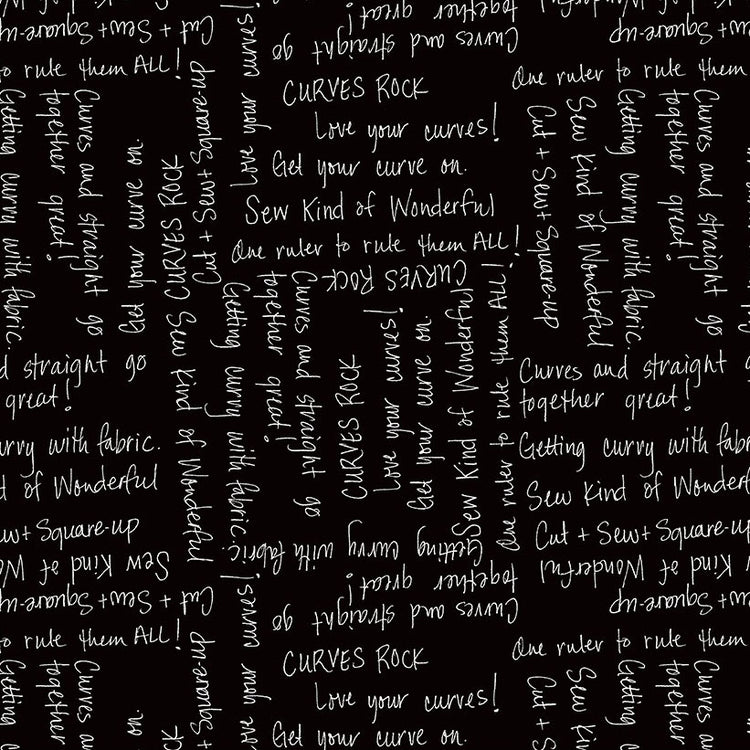 Cut + Sew + Square-up
to rule them ALL!
Getting curvy with fabric.
Curves and straight go
together great!
Get your curve on.
CURVES ROCK
Cut + Sew + Square-up
Love your curves!
Curves and straight go
together great!
CURVES ROCK
Love your curves!
Get your curve on.
Sew Kind of Wonderful
One ruler to rule them ALL!
CURVES ROCK
Cut + Sew + Square-up
One ruler to rule them
Cut + Sew + Square-up
Sew Kind of Wonderful
Getting curvy with fabric.
Curves and straight go
together great!
straight go
great!
with fabric.
of Wonderful
Square-up
Sew Kind of
Cut + Sew + Square-up
to rule them ALL!
Sew Kind of Wonderful
Getting curvy with fabric.
Curves and straight go
together great!
CURVES ROCK
Love your curves!
Get your curve on.
Sew Kind of Wonderful
One ruler to rule them ALL!
Curves and straight
together great!
Getting curvy with
Sew Kind of Wonderful
Cut + Sew + Square-up
Sew Kind of Wonderful
Cut + Sew + Square-up
Getting curvy with fabric.
Curves and straight go
together great!
CURVES ROCK
Love your curves!
Get your curve on.
Love your curves!
Square-up
One ruler to rule them
Getting
Curves and
together
on.
Cut +
Sew Kind of
Getting curvy
Curves and
together